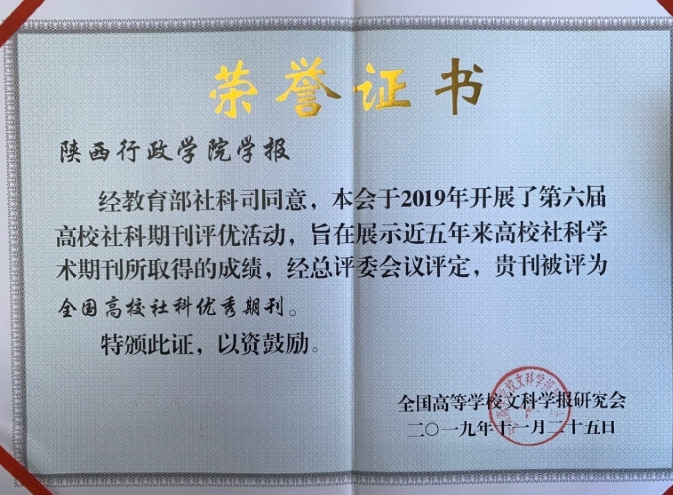 荣誉证书
陕西行政学院学报
经教育部社科司同意，本会于2019年开展了第六届
高校社科期刊评优活动，旨在展示近五年来高校社科学
术期刊所取得的成绩，经总评委会议评定，贵刊被评为
全国高校社科优秀期刊。
特颁此证，以资鼓励。
全国高等学校文科学报研究会
二〇一九年十一月二十五日